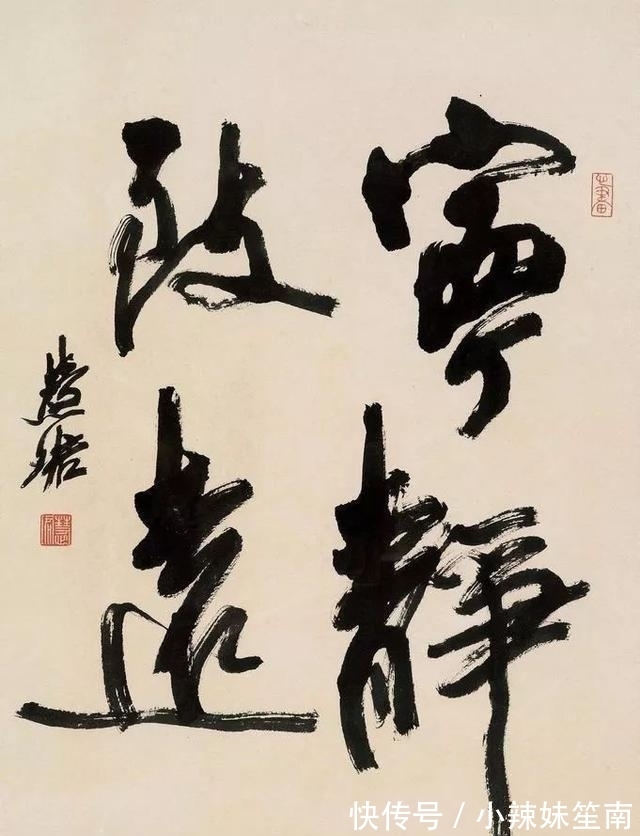 寧靜
致遠
慧珺
快传号 / 小辣妹笙南